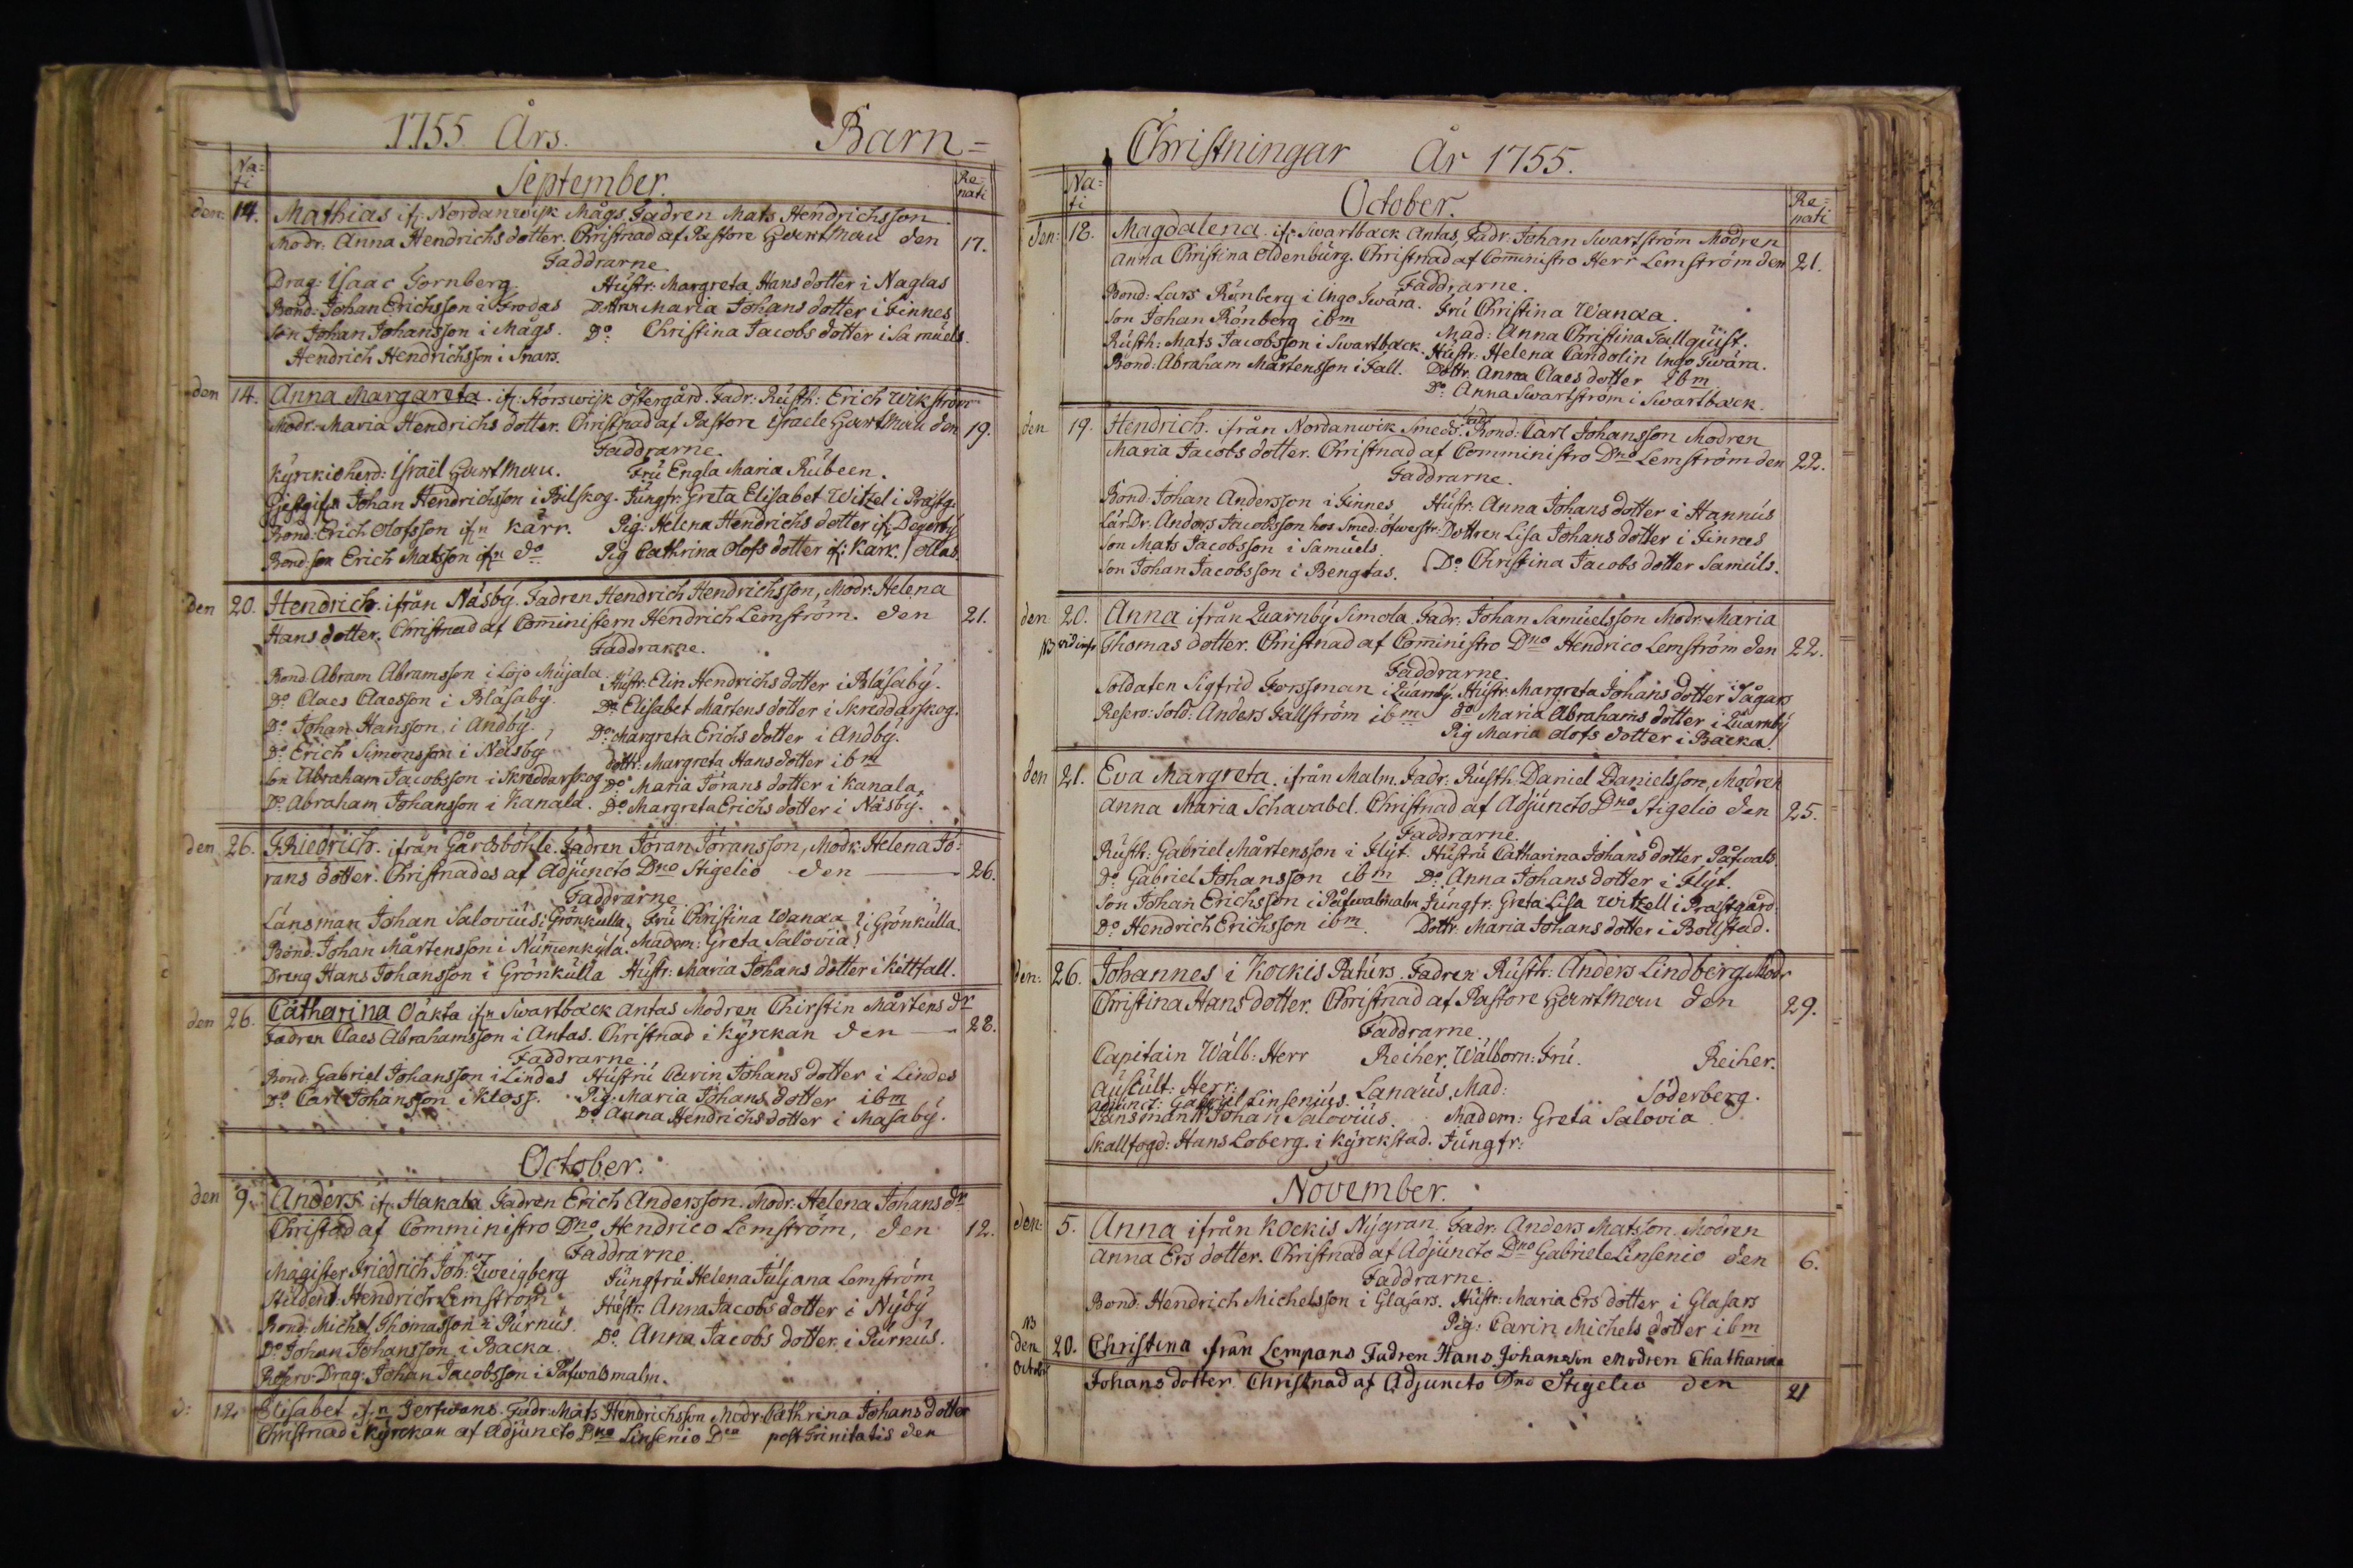 1755. Års. Barn=
Na=
ti
September.
Re=
nati
den: 14. Mathias ifr: Nordanwijk Mågs. Fadren Mats Hendrichsson
Modr: Anna Hendrichs dotter. Christnad af Pastore Hartman den 17.
Faddrarne
Drag: Isaac Tornberg. Hustr: Margreta Hans dotter i Naglas
Bond: Johan Erichsson i Frodas Dottren Maria Johans dotter i Finnes
Son Johan Johansson i Mågs. Do: Christina Jacobs dotter i Samuels.
Hendrich Hendrichsson i Snars.
den 14. Anna Margareta ifr: Horswijk östergård. Fadr: Rusth: Erich Wikström
Modr: Maria Hendrichs dotter. Christnad af Pastore Israele Hartman den 19.
Faddrarne.
Kyrckioherd: Israël Hartman. Fru Engla Maria Rubeen.
Gjestgifn Johan Hendrichsson i Bilskog. Jungfr: Greta Elisabet Witzel i Prästg.
Bond: Erich Olofsson ifrn Kärr. Pig: Helena Hendrichs dotter ifr: Degerby
Bond: son Erich Matsson ifrn do Pig Cathrina Olofs dotter ifr: Kärk. / ollas
den 20. Hendrich. ifrån Näsby. Fadren Hendrich Hendrichsson, Modr: Helena
Hans dotter. Christnad af Comministern Hendrich Lemström. den 21.
Faddrarne.
Bond Abram Abramsson i Lojo Mujala. Hustr: Elin Hendrichs dotter i Blåsaby.
Do Claes Claesson i Blåsaby. Do Elisabet Mårtens dotter i Skreddarskog.
Do Johan Hansson. i Andby. Do: Margreta Erichs dotter i Andby.
Do Erich Simonsson i Näsby dottr: Margreta Hans dotter ibm
Son Abraham Jacobsson i Skreddarskog. Do Maria Jörans dotter i Kanala,
Do. Abraham Johansson i Kanala. Do Margreta Erichs dotter i Näsby.
den 26. FRiedrich. ifrån Gårdsböhle. Fadren Jöran Jöransson, Modr: Helena Jö-
rans dotter. Christnades af Adjuncto Dno Stigelio den 26.
Faddrarne
Länsman Johan Salovius i Grönkulla, Fru Christina Wanæa i Grönkulla.
Bond: Johan Mårtensson i Numenkyla. Madem: Greta Salovia
Dreng Hans Johansson i Grönkulla Hustr: Maria Johans dotter i Kittfall.
den 26. Catharina Oäkta ifrn Swartback Antas Modren Chirstin Mårtens dr
Fadren Claes Abrahamsson i Antas. Christnad i Kyrckan den 28.
Faddrarne.
Bond: Gabriel Johansson i Lindes Hustru Carin Johans dotter i Lindes
Do Carl Johansson i Kloss. Pig: Maria Johans dotter ibm
Do Anna Hendrichs dotter i Masaby.
October.
den 9. Anders ifr: Hakala Fadren Erich Andersson. Modr: Helena Johans dr
Christnad af Comministro Dno Hendrico Lemström, den 12.
Faddrarne
Magister Friedrich Joh: Zweigberg Jungfru Helena Juljana Lemström
Student: Hendrich Lemström Hustr: Anna Jacobs dotter i Nyby
Bond: Michel Thomasson i Purnus. Do Anna Jacobs dotter. i Purnus.
Do Johan Johansson i Backa.
Reserv: Drag: Johan Jacobsson i Påfwalsmalm.
d: 12 Elisabet ifrn Jerfwans. Fadr: Mats Hendrichsson Modr: Cathrina Johans dotter
Christnad i Kyrckan af Adjuncto Dno Linsenio Dca post Trinitatis den
Christningar År 1755.
Na=
ti
October.
Re=
nati
den: 18. Magdalena. ifr: Swartback Antas, Fadr: Johan Swartström Modren
Anna Christina Oldenburg. Christnad af Comministro Herr Lemström den 21.
Faddrarne.
Bond: Lars Rönberg i Ingo Twära. Fru Christina Wanæa.
Son Johan Rönberg ibm Mad: Anna Christina Fallquist.
Rusth: Mats Jacobsson i Swartback. Hustr: Helena Candolin Ingo Twära.
Bond: Abraham Mårtensson i Fall. Dottr. Anna Claes dotter ibm
Do Anna Swartström i Swartback.
den 19. Hendrich. ifrån Nordanwik Smeds. Fadr Bond: Carl Johansson Modren
Maria Jacobs dotter. Christnad af Comministro Dno Lemström den 22.
Faddrarne.
Bond: Johan Andersson i Finnes Hustr: Anna Johans dotter i Hannus
LärDr. Anders Jacobsson hos Smed: öfwerstr: Dottren Lisa Johans dotter i Finnes
Son Mats Jacobsson i Samuels.
Son Johan Jacobsson i Bengtas. Do Christina Jacobs dotter Samuls.
den 20. Anna ifrån Quarnby Simola. Fadr: Johan Samuelsson Modr: Maria
NB vid infr Thomas dotter. Christnad af Comministro Dno Hendrico Lemström den 22.
Faddrarne.
Soldaten Sigfrid Forssman i Quarnby. Hustr: Margreta Johans dotter i Sågars
Reserv: Sold: Anders Fallström ibm do Maria Abrahams dotter i Quarnby
Pig Maria Olofs dotter i Backa.
den 21. Eva Margreta. ifrån Malm. Fadr: Rusth: Daniel Danielsson, Modren
Anna Maria Schavabel. Christnad af Adjuncto Dno Stigelio den 25.
Faddrarne.
Rusth: Gabriel Mårtensson i Flyt. Hustru Catharina Johans dotter Påfwals
Do Gabriel Johansson ibm Do Anna Johans dotter i Flyt.
Son Johan Erichsson i Påfwalmalm Jungfr: Greta Lisa Witzell i Prästgård.
Do Hendrich Erichsson ibm. Dottr: Maria Johans dotter i Bollstad.
den: 26. Johannes i Kockis Paturs. Fadren Rusth: Anders Lindberg. Modr
Christina Hans dotter. Christnad af Pastore Hartman den 29.
Faddrarne
Capitain Wälb: Herr Reiher. Wälborn: Fru. Reiher.
Auscult: Herr: Lanæus, Mad: Söderberg.
Adjunct: Gabriel Linsenius.
Länsmann Johan Salovius. Madem: Greta Salovia
Skallfogd: Hans Loberg. i Kyrckstad. Jungfr:
November.
den: 5. Anna ifrån Kockis Nygran. Fadr: Anders Matsson. Modren
Anna Ers dotter. Christnad af Adjuncto Dno Gabriele Linsenio den 6.
Faddrarne.
Bond: Hendrich Michelsson i Glasars. Hustr: Maria Ers dotter i Glasars
Pig: Carin Michels dotter ibm
NB
den 20. Christina från Lempans Fadren Hans Johansson Modren Chatharina
October
Johans dotter Christnad af Adjuncto Dno Stigelio den 21